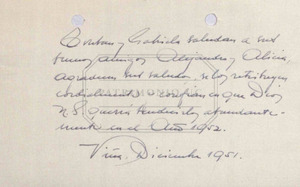 y Gabriela saludan a sus
buenos amigos Alejandro y Alicia,
agradecen sus saludos, se los retribuyen
cordialmente y confían en que Dios
N.S. querrá bendecirlos abundante-
mente en el Año 1952.
Viña, Diciembre 1951.